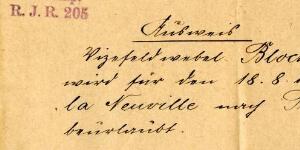 R. J. R. 205
Ausweis
Vizefeldwebel Bloc
wird für den 18. 8
la Neuville nach
beurlaubt.